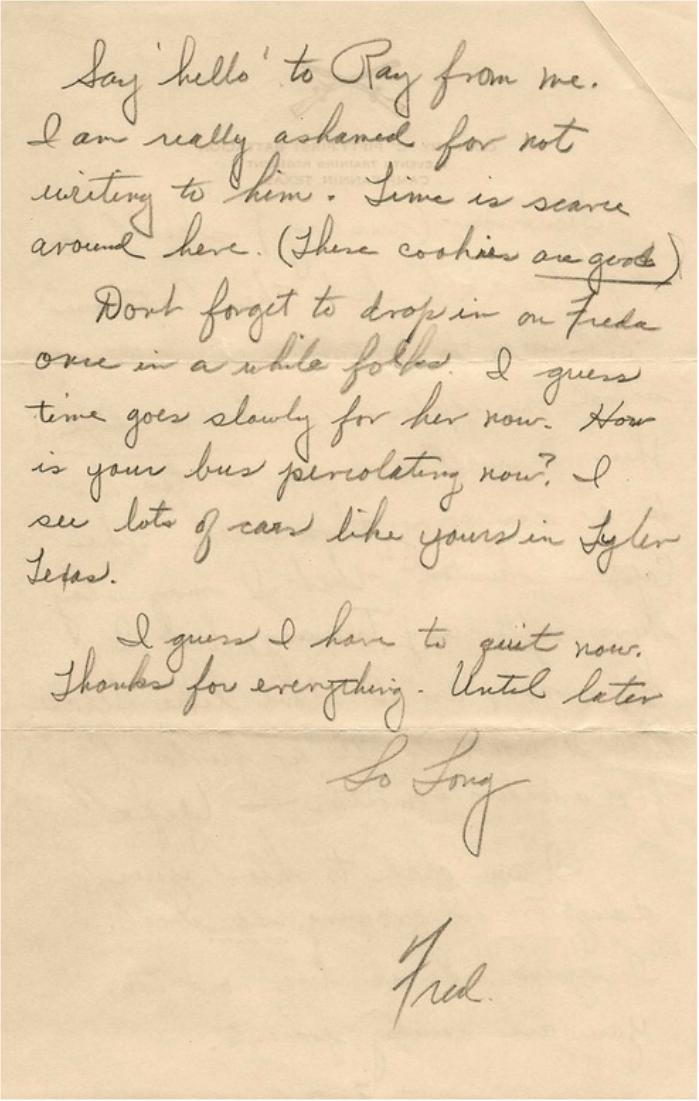 Say 'hello' to Ray from me.
I am really ashamed for not
writing to him. Time is scarce
around here. (These cookies are good)
Dont forget to drop in on Freda
once in a while folks. I guess
time goes slowly for her now. How
is your bus percolating now? I
see lots of cars like yours in Tyler
Texas.
I guess I have to quit now.
Thanks for everything. Until later
So Long
Fred.